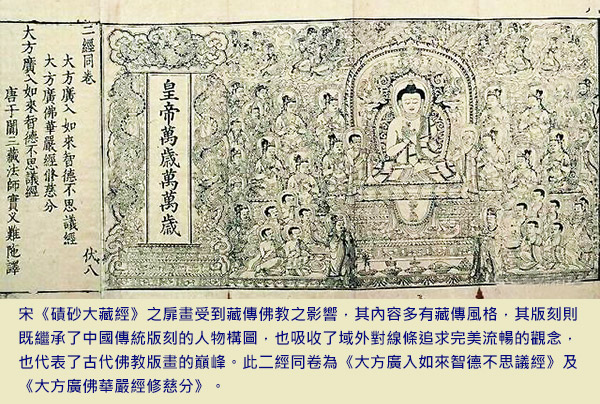 皇帝萬歲萬萬歲
二經同卷 伏八
大方廣入如來智德不思議經
大方廣佛華嚴經脩慈分
大方廣入如來智德不思議經
唐于闐三藏法師實叉難陀譯
宋《磧砂大藏經》之扉畫受到藏傳佛教之影響，其內容多有藏傳風格，其版刻則
既繼承了中國傳統版刻的人物構圖，也吸收了域外對線條追求完美流暢的觀念，
也代表了古代佛教版畫的巔峰。此二經同卷為《大方廣入如來智德不思議經》及
《大方廣佛華嚴經修慈分》。